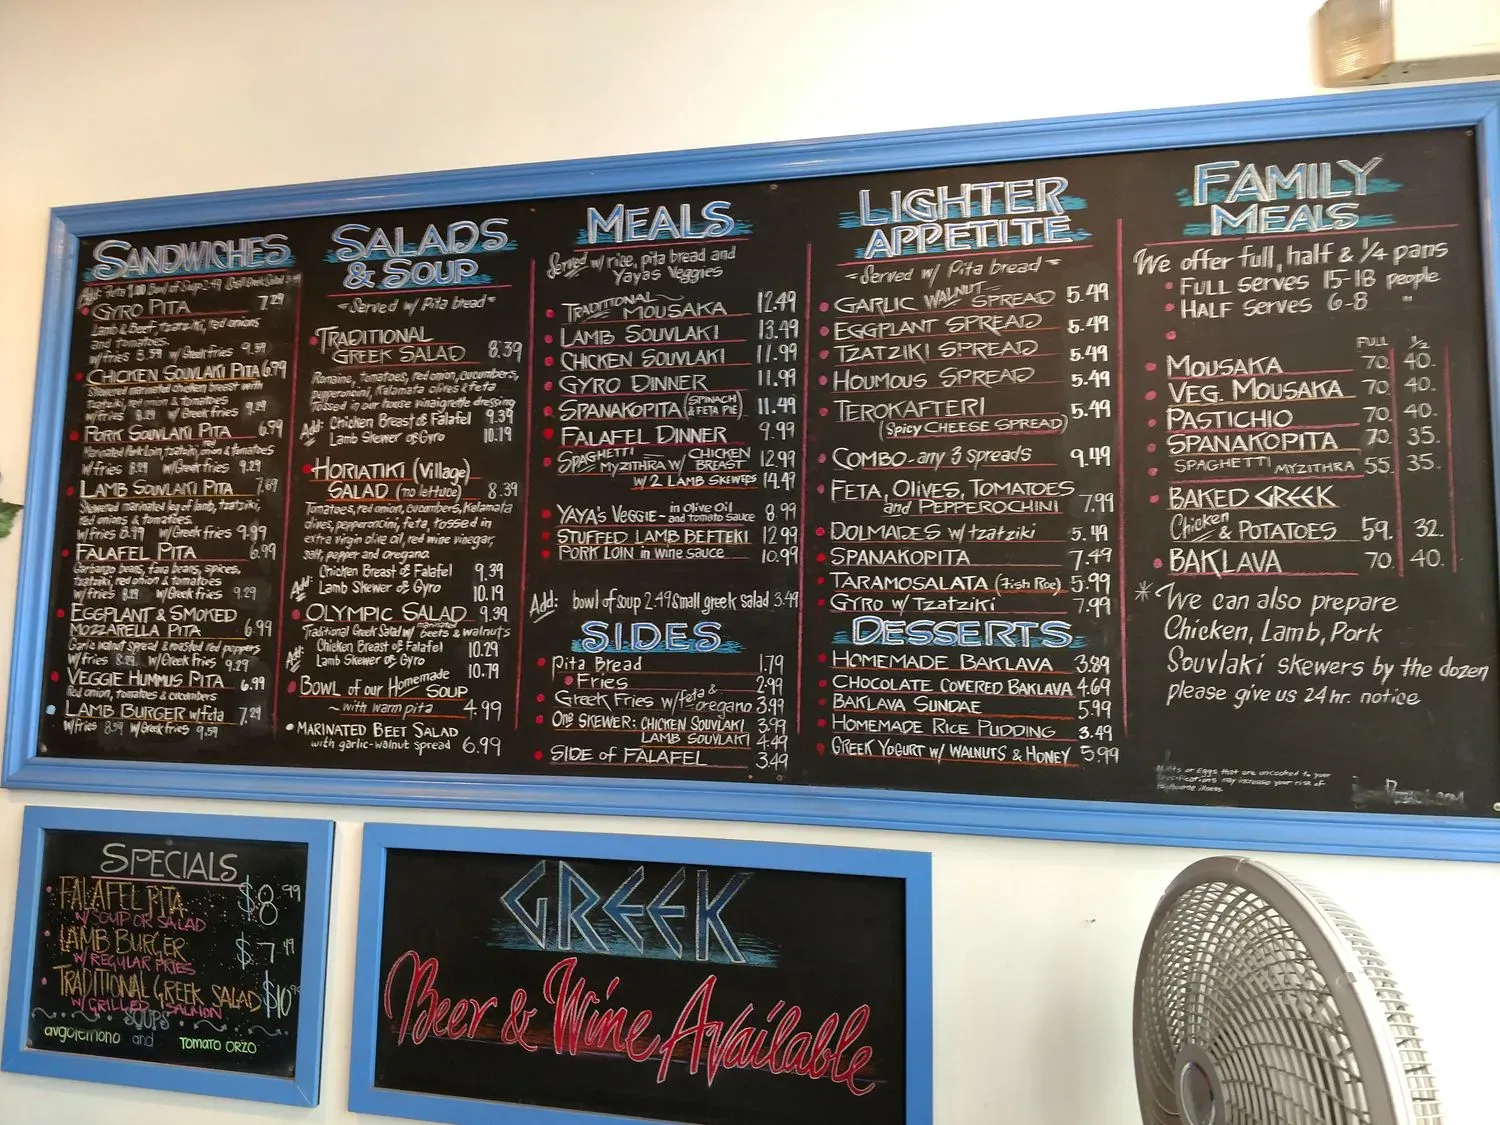 SANDWICHES
Add: Bowl of Soup 2.49 Small Greek Salad 3.49
GYRO PITA 7.29
Lamb & Beef, tzatziki, red onions
and tomatoes.
w/fries 8.59 w/Greek fries 9.59
CHICKEN SOUVLAKI PITA 6.99
Skewered marinated chicken breast with
tzatziki, onion & tomatoes
w/fries 8.29 w/Greek fries 9.29
PORK SOUVLAKI PITA 6.99
Marinated Pork Loin, tzatziki, red onion & tomatoes
w/fries 8.29 w/Greek fries 9.29
LAMB SOUVLAKI PITA 7.69
Skewered marinated leg of lamb, tzatziki,
red onions & tomatoes.
w/fries 8.99 w/Greek fries 9.89
FALAFEL PITA 6.99
Garbanzo beans, fava beans, spices,
tzatziki, red onion & tomatoes
w/fries 8.29 w/Greek fries 9.29
EGGPLANT & SMOKED
MOZZARELLA PITA 6.99
Garlic walnut spread & roasted red peppers
w/fries 8.29 w/Greek fries 9.29
VEGGIE HUMMUS PITA 6.99
Red onion, tomatoes & cucumbers
LAMB BURGER w/feta 7.29
w/fries 8.59 w/Greek fries 9.59
SALADS
& SOUP
Served w/ Pita bread
TRADITIONAL
GREEK SALAD 8.39
Romaine, tomatoes, red onion, cucumbers,
pepperoncini, Kalamata olives & feta
tossed in our house vinaigrette dressing
Add: Chicken Breast of Falafel 9.39
Lamb Skewer of Gyro 10.19
HORIATIKI (Village)
SALAD (no lettuce) 8.39
Tomatoes, red onion, cucumbers, Kalamata
olives, pepperoncini, feta, tossed in
extra virgin olive oil, red wine vinegar,
salt, pepper and oregano.
Add: Chicken Breast of Falafel 9.39
Lamb Skewer of Gyro 10.19
OLYMPIC SALAD 9.39
Traditional Greek Salad w/ marinated beets & walnuts
Add: Chicken Breast of Falafel 10.29
Lamb Skewer of Gyro 10.79
BOWL of our Homemade SOUP
~ with warm pita 4.99
MARINATED BEET SALAD
with garlic-walnut spread 6.99
MEALS
Served w/ rice, pita bread and
Yayas Veggies
TRADITIONAL MOUSAKA 12.49
LAMB SOUVLAKI 13.49
CHICKEN SOUVLAKI 11.99
GYRO DINNER 11.99
SPANAKOPITA (SPINACH & FETA PIE) 11.49
FALAFEL DINNER 9.99
SPAGHETTI MYZITHRA W/ CHICKEN BREAST 12.99
W/ 2 LAMB SKEWERS 14.49
YAYA'S VEGGIE - in Olive Oil and tomato sauce 8.99
STUFFED LAMB BEFTEKI 12.99
PORK LOIN in wine sauce 10.99
Add: bowl of soup 2.49 small greek salad 3.49
SIDES
Pita Bread 1.79
Fries 2.99
Greek Fries w/feta & oregano 3.99
One SKEWER: CHICKEN SOUVLAKI 3.99
LAMB SOUVLAKI 4.49
SIDE of FALAFEL 3.49
LIGHTER
APPETITE
Served w/ Pita bread
GARLIC WALNUT SPREAD 5.49
EGGPLANT SPREAD 5.49
TZATZIKI SPREAD 5.49
HOUMOUS SPREAD 5.49
TEROKAFTERI 5.49
(Spicy CHEESE SPREAD)
COMBO-any 3 spreads 9.49
FETA, OLIVES, TOMATOES
and PEPPEROCHINI 7.99
DOLMADES w/ tzatziki 5.49
SPANAKOPITA 7.49
TARAMOSALATA (Fish Roe) 5.99
GYRO w/ TZATZIKI 7.99
DESSERTS
HOMEMADE BAKLAVA 3.89
CHOCOLATE COVERED BAKLAVA 4.69
BAKLAVA SUNDAE 5.99
HOMEMADE RICE PUDDING 3.49
GREEK YOGURT w/ WALNUTS & HONEY 5.99
FAMILY
MEALS
We offer full, half & 1/4 pans
FULL serves 15-18 people
HALF serves 6-8 "
FULL 1/2
MOUSAKA 70. 40.
VEG. MOUSAKA 70. 40.
PASTICHIO 70. 40.
SPANAKOPITA 70. 35.
SPAGHETTI MYZITHRA 55. 35.
BAKED GREEK
Chicken & POTATOES 59. 32.
BAKLAVA 70. 40.
* We can also prepare
Chicken, Lamb, Pork
Souvlaki skewers by the dozen
please give us 24 hr. notice
or Eggs that are uncooked to your
specifications may increase your risk of
foodbourne illness.
SPECIALS
FALAFEL PITA $8.99
W/ SOUP OR SALAD
LAMB BURGER $7.49
W/ REGULAR FRIES
TRADITIONAL GREEK SALAD $10.99
W/ GRILLED SALMON
SOUPS
avgolemono and TOMATO ORZO
GREEK
Beer & Wine Available